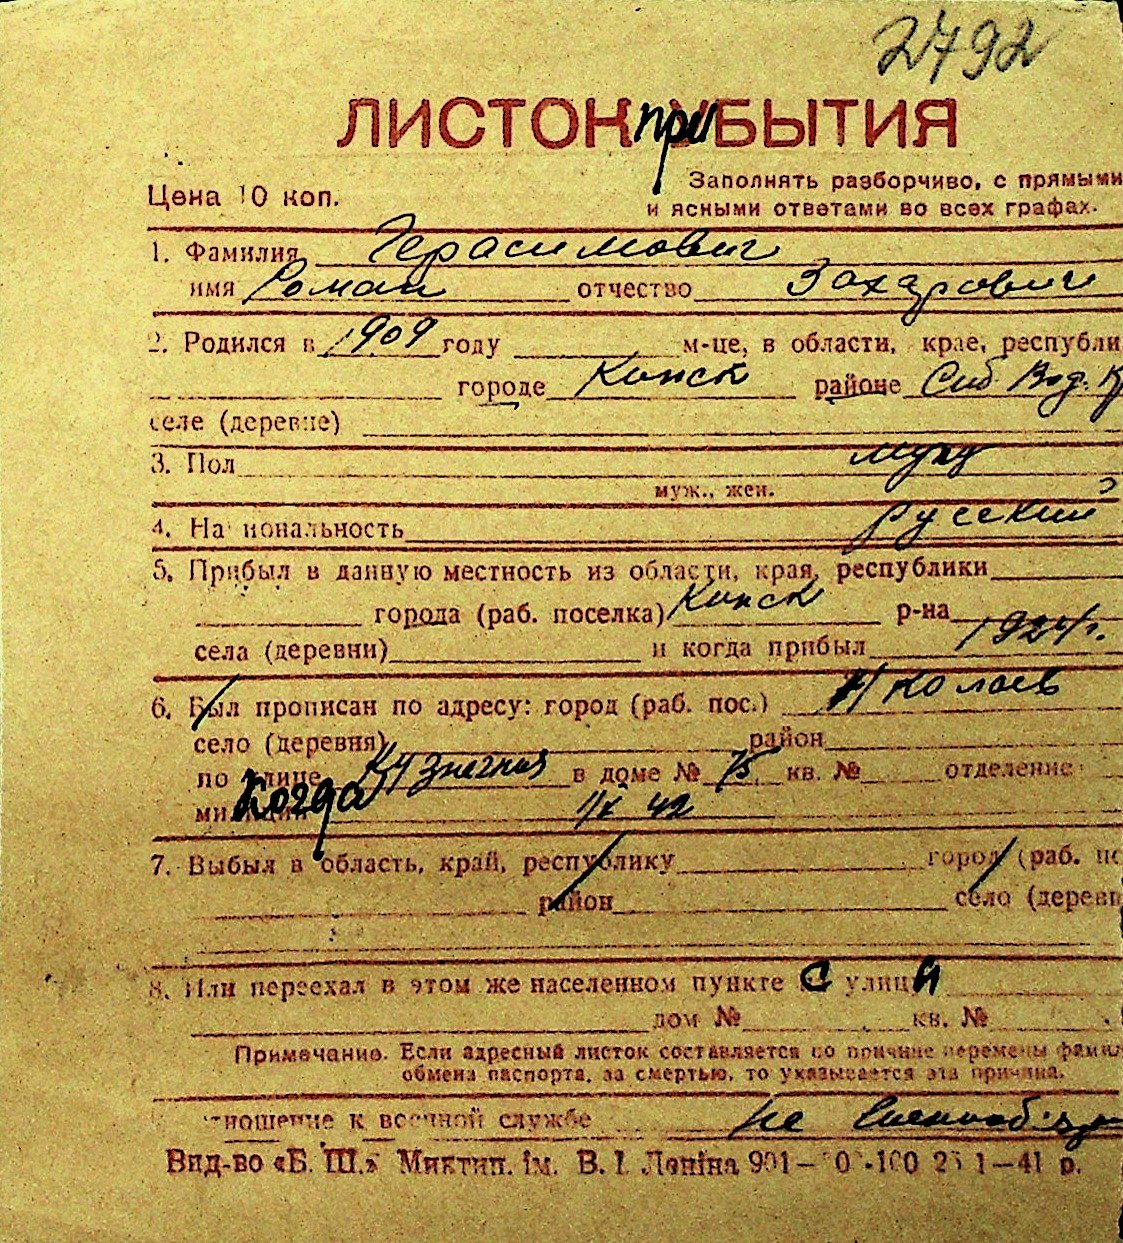 2792
ЛИСТОК приБЫТИЯ
Цена 10 коп.
Заполнять разборчиво, с прямыми
и ясными ответами во всех графах.
1. Фамилия Герасимович
имя Роман отчество Захарович
2. Родился в 1909 году м-це, в области, крае, республи
городе Канск районе Сиб
селе (деревне)
3. Пол муж
муж., жен.
4. Национальность русский
5. Прибыл в данную местность из области, края, республики
города (раб. поселка) Канск р-на
села (деревни) и когда прибыл 1924 г.
6. Был прописан по адресу: город (раб. пос.) Николаев
село (деревня) район
по улице Кузнечная в доме № 75 кв. № отделение
Когда IX 42
7. Выбыл в область, край, республику город (раб. по
район село (деревн
8. Или переехал в этом же населенном пункте С улицы
дом № кв. №
Примечание. Если адресный листок составляется по причине перемены фамил
обмена паспорта, за смертью, то указывается эта причина.
тношение к военной службе не военнообяз
Вид-во «Б. Ш.» Миктип. ім. В. І. Леніна 1—41 р.